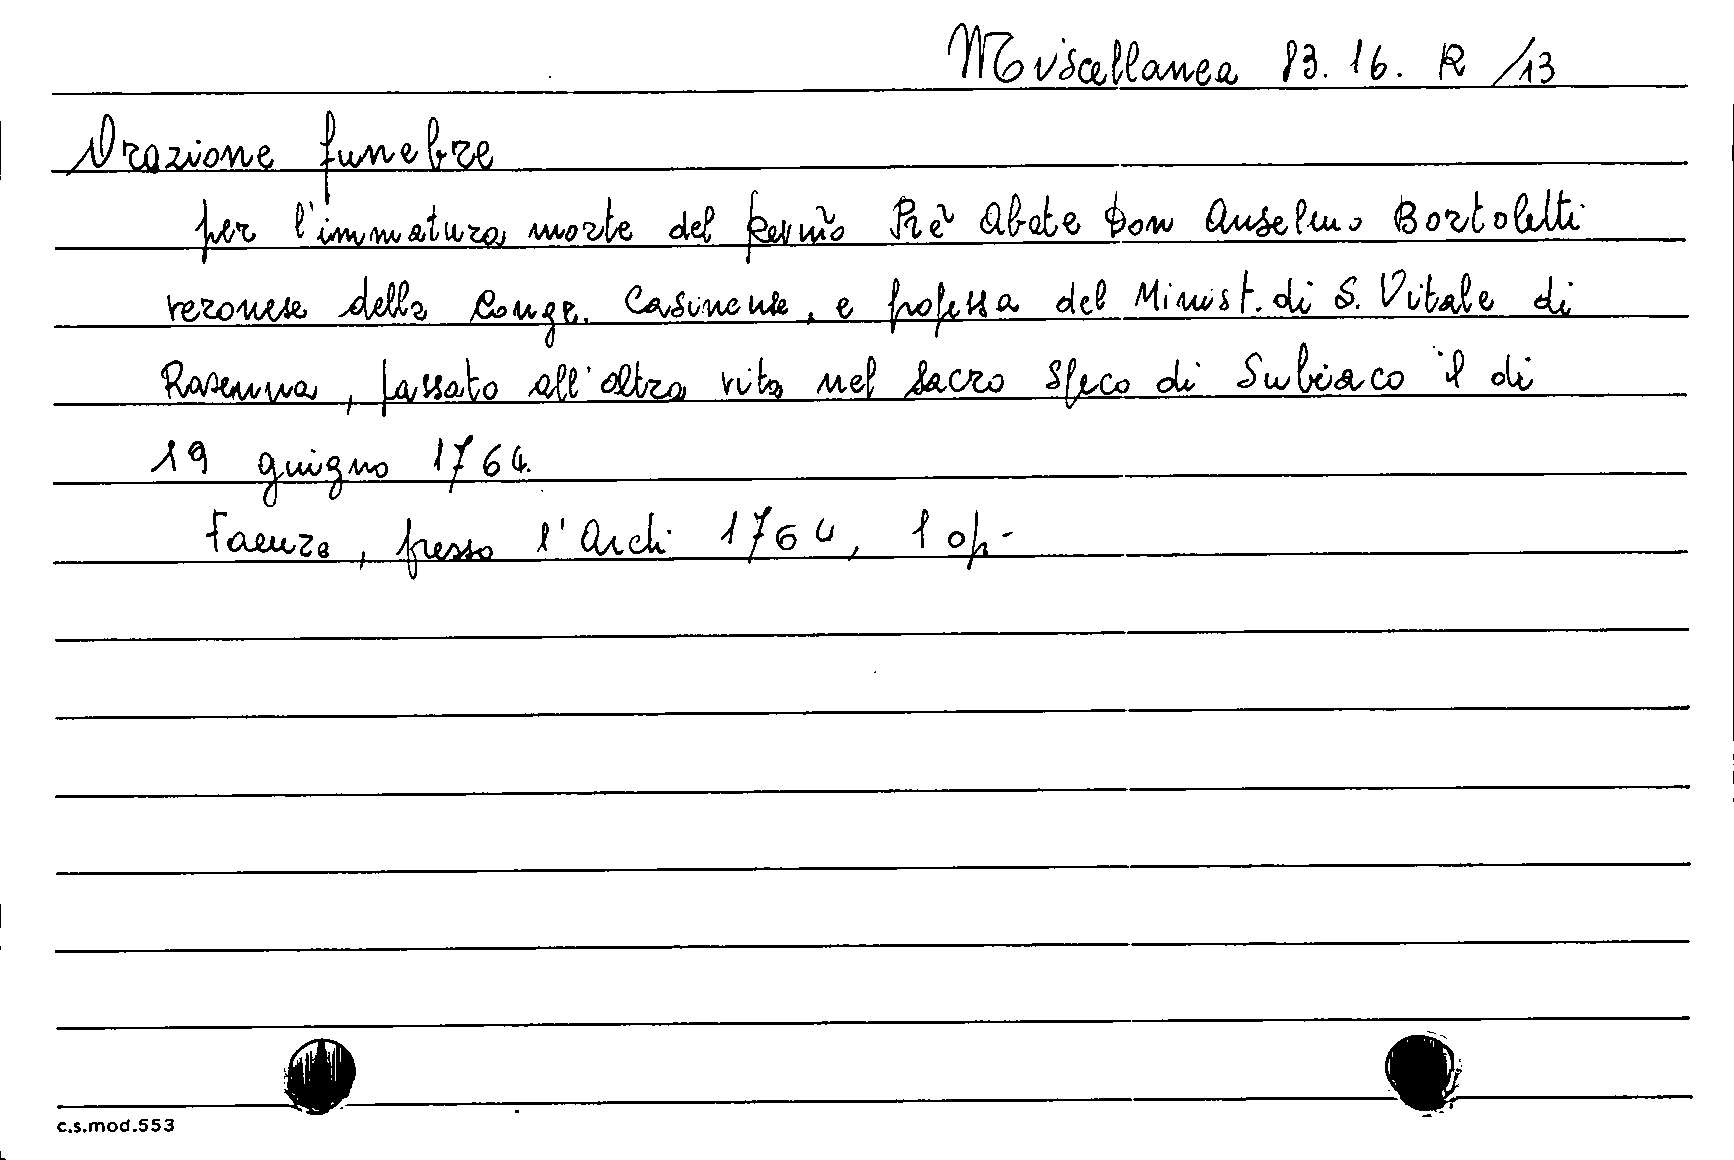 Miscellanea 83. 16. R /13
Orazione funebre
per l'immatura morte del Revmo Pre Abate Don Anselmo Bortoletti
veronese della Congr. Casinense, e professa del Minist. di S. Vitale di
Ravenna, passato all'altra vita nel sacro speco di Subiaco il di
19 guigno 1764.
Faenza, presso l'Archi 1764, 1 op.
c.s.mod.553